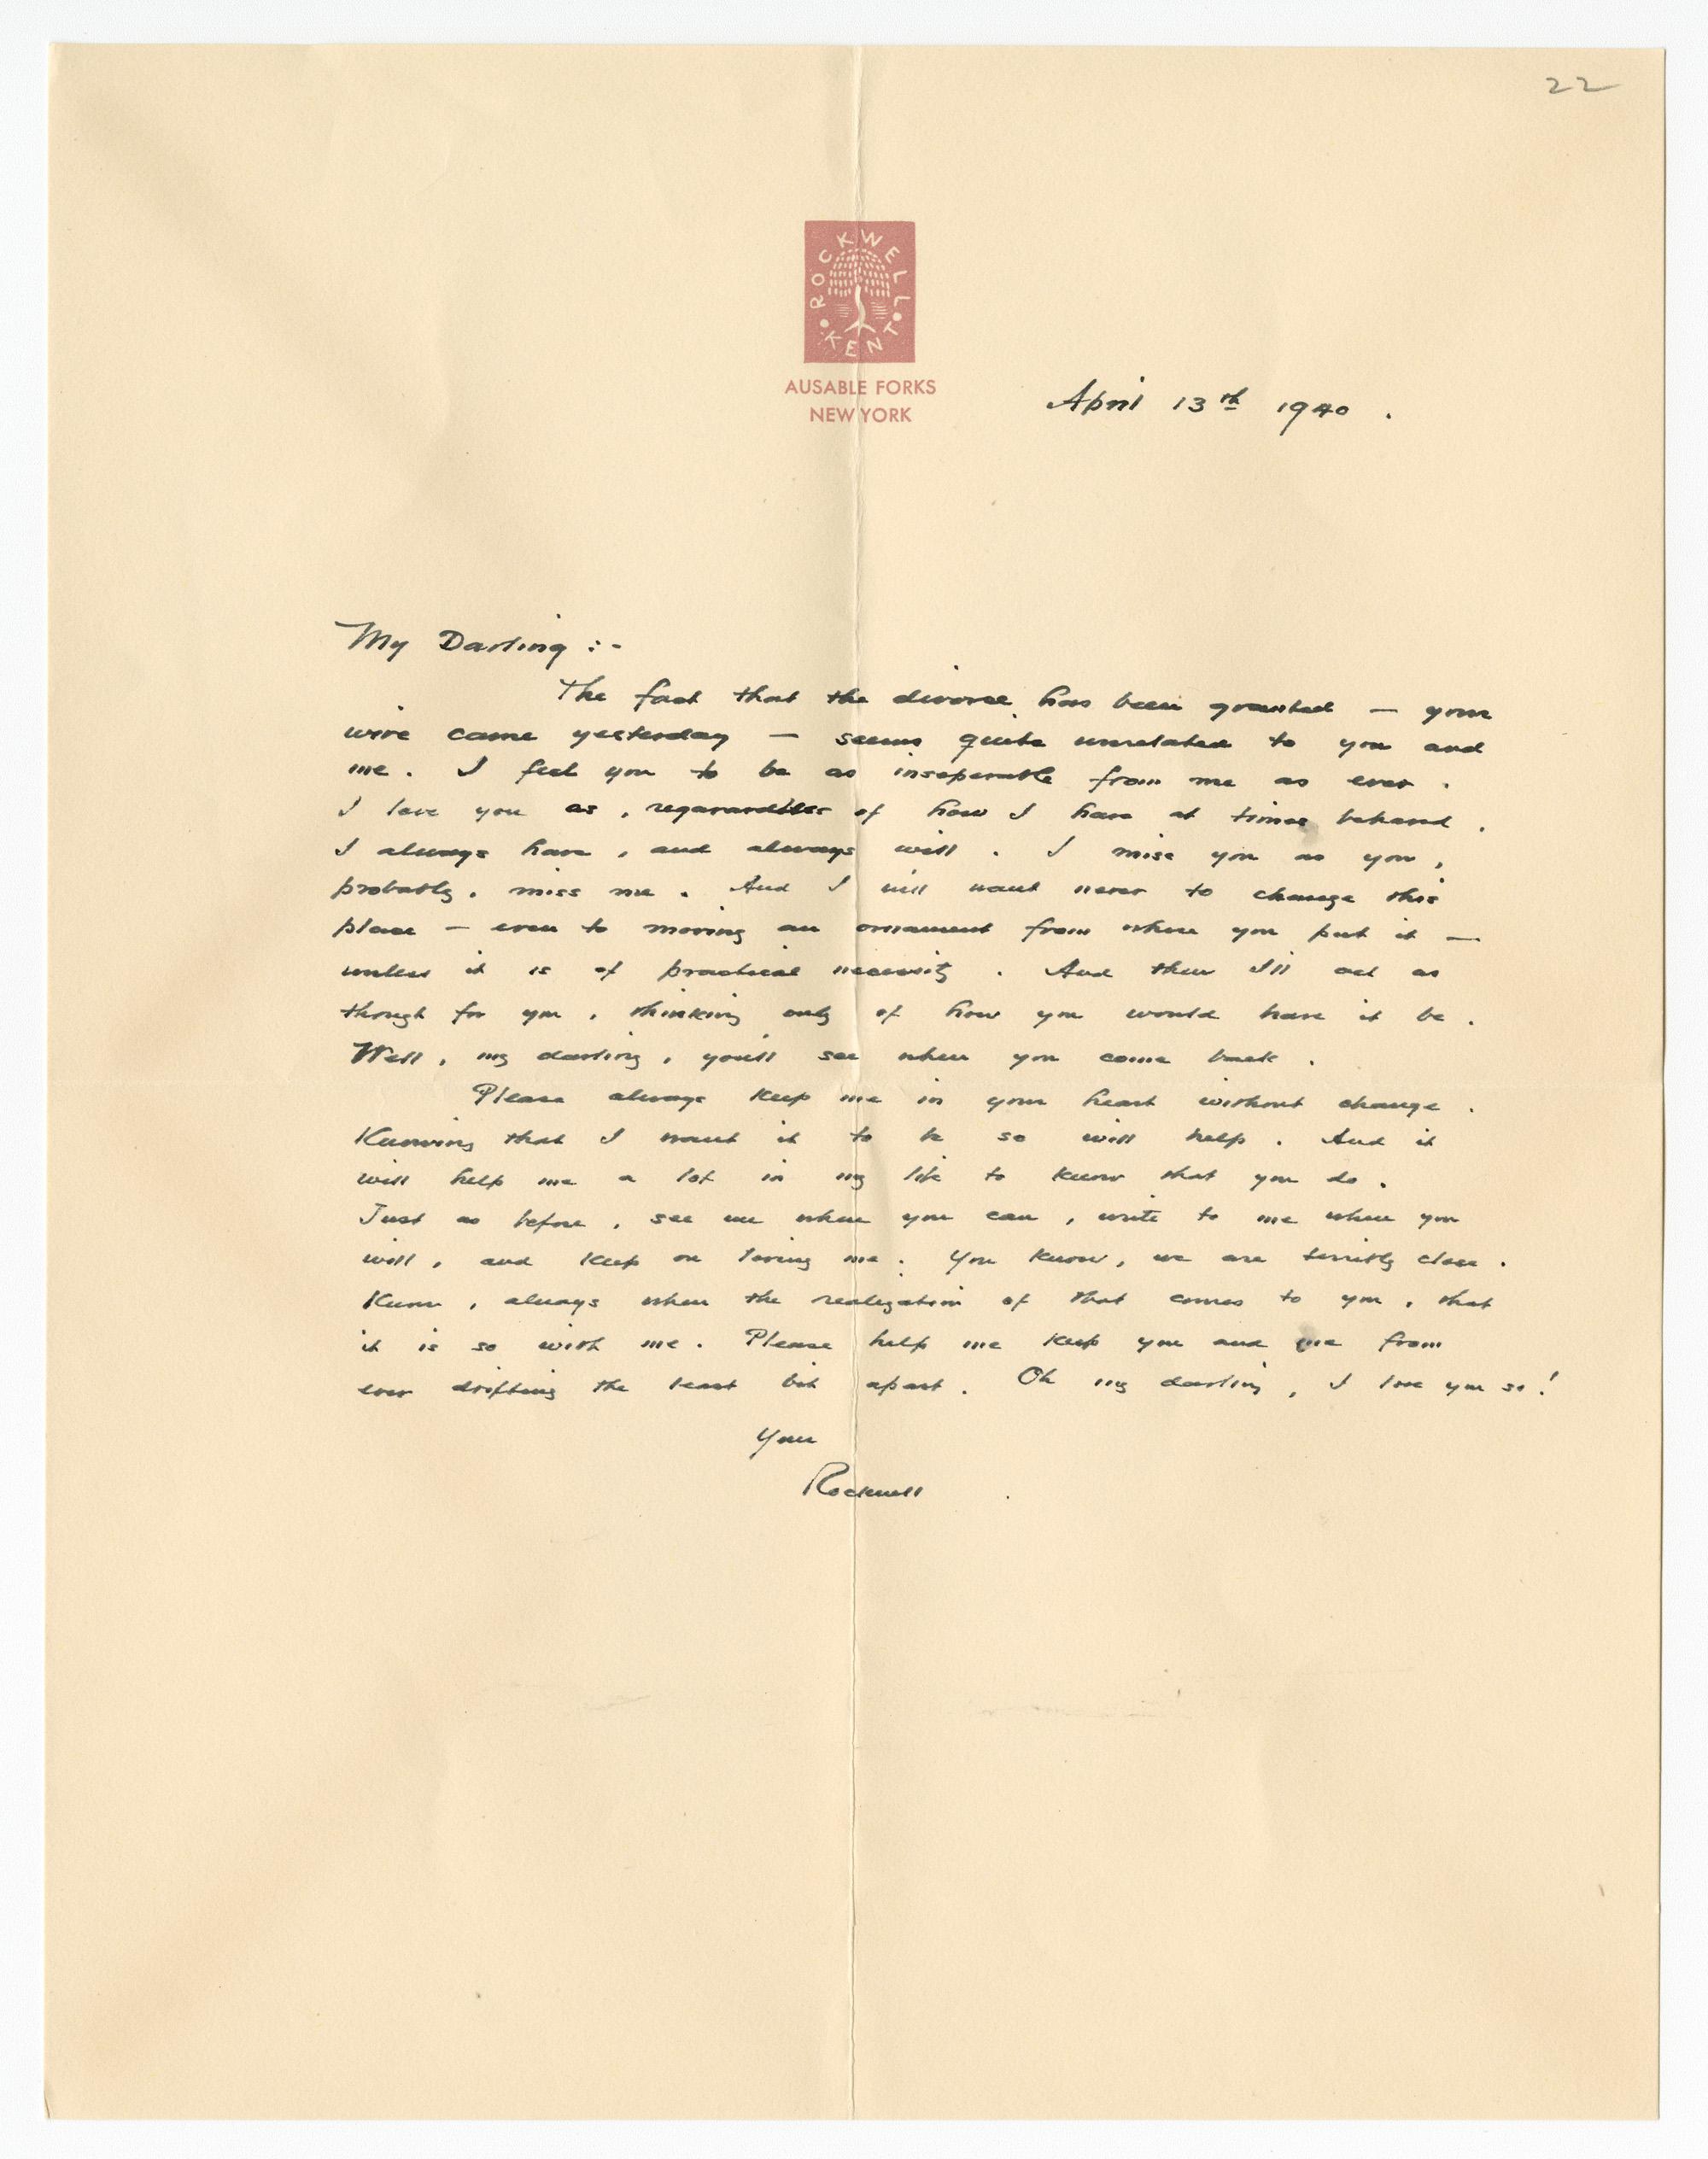 22
ROCKWELL
KENT
AUSABLE FORKS
NEW YORK
April 13th 1940.
My Darling :-
The fact that the divorce has been granted — your
wire came yesterday — seems quite unrelated to you and
me. I feel you to be as inseparable from me as ever.
I love you as, regardless of how I have at times behaved,
I always have, and always will. I miss you as you,
probably, miss me. And I will want never to change this
place — even to moving an ornament from where you put it —
unless it is of practical necessity. And then I'll act as
though for you, thinking only of how you would have it be.
Well, my darling, you'll see when you come back.
Please always keep me in your heart without change.
Knowing that I want it to be so will help. And it
will help me a lot in my life to know that you do.
Just as before, see me when you can, write to me when you
will, and keep on loving me. You know, we are terribly close.
Know, always when the realization of that comes to you, that
it is so with me. Please help me keep you and me from
ever drifting the least bit apart. Oh my darling, I love you so!
Your
Rockwell